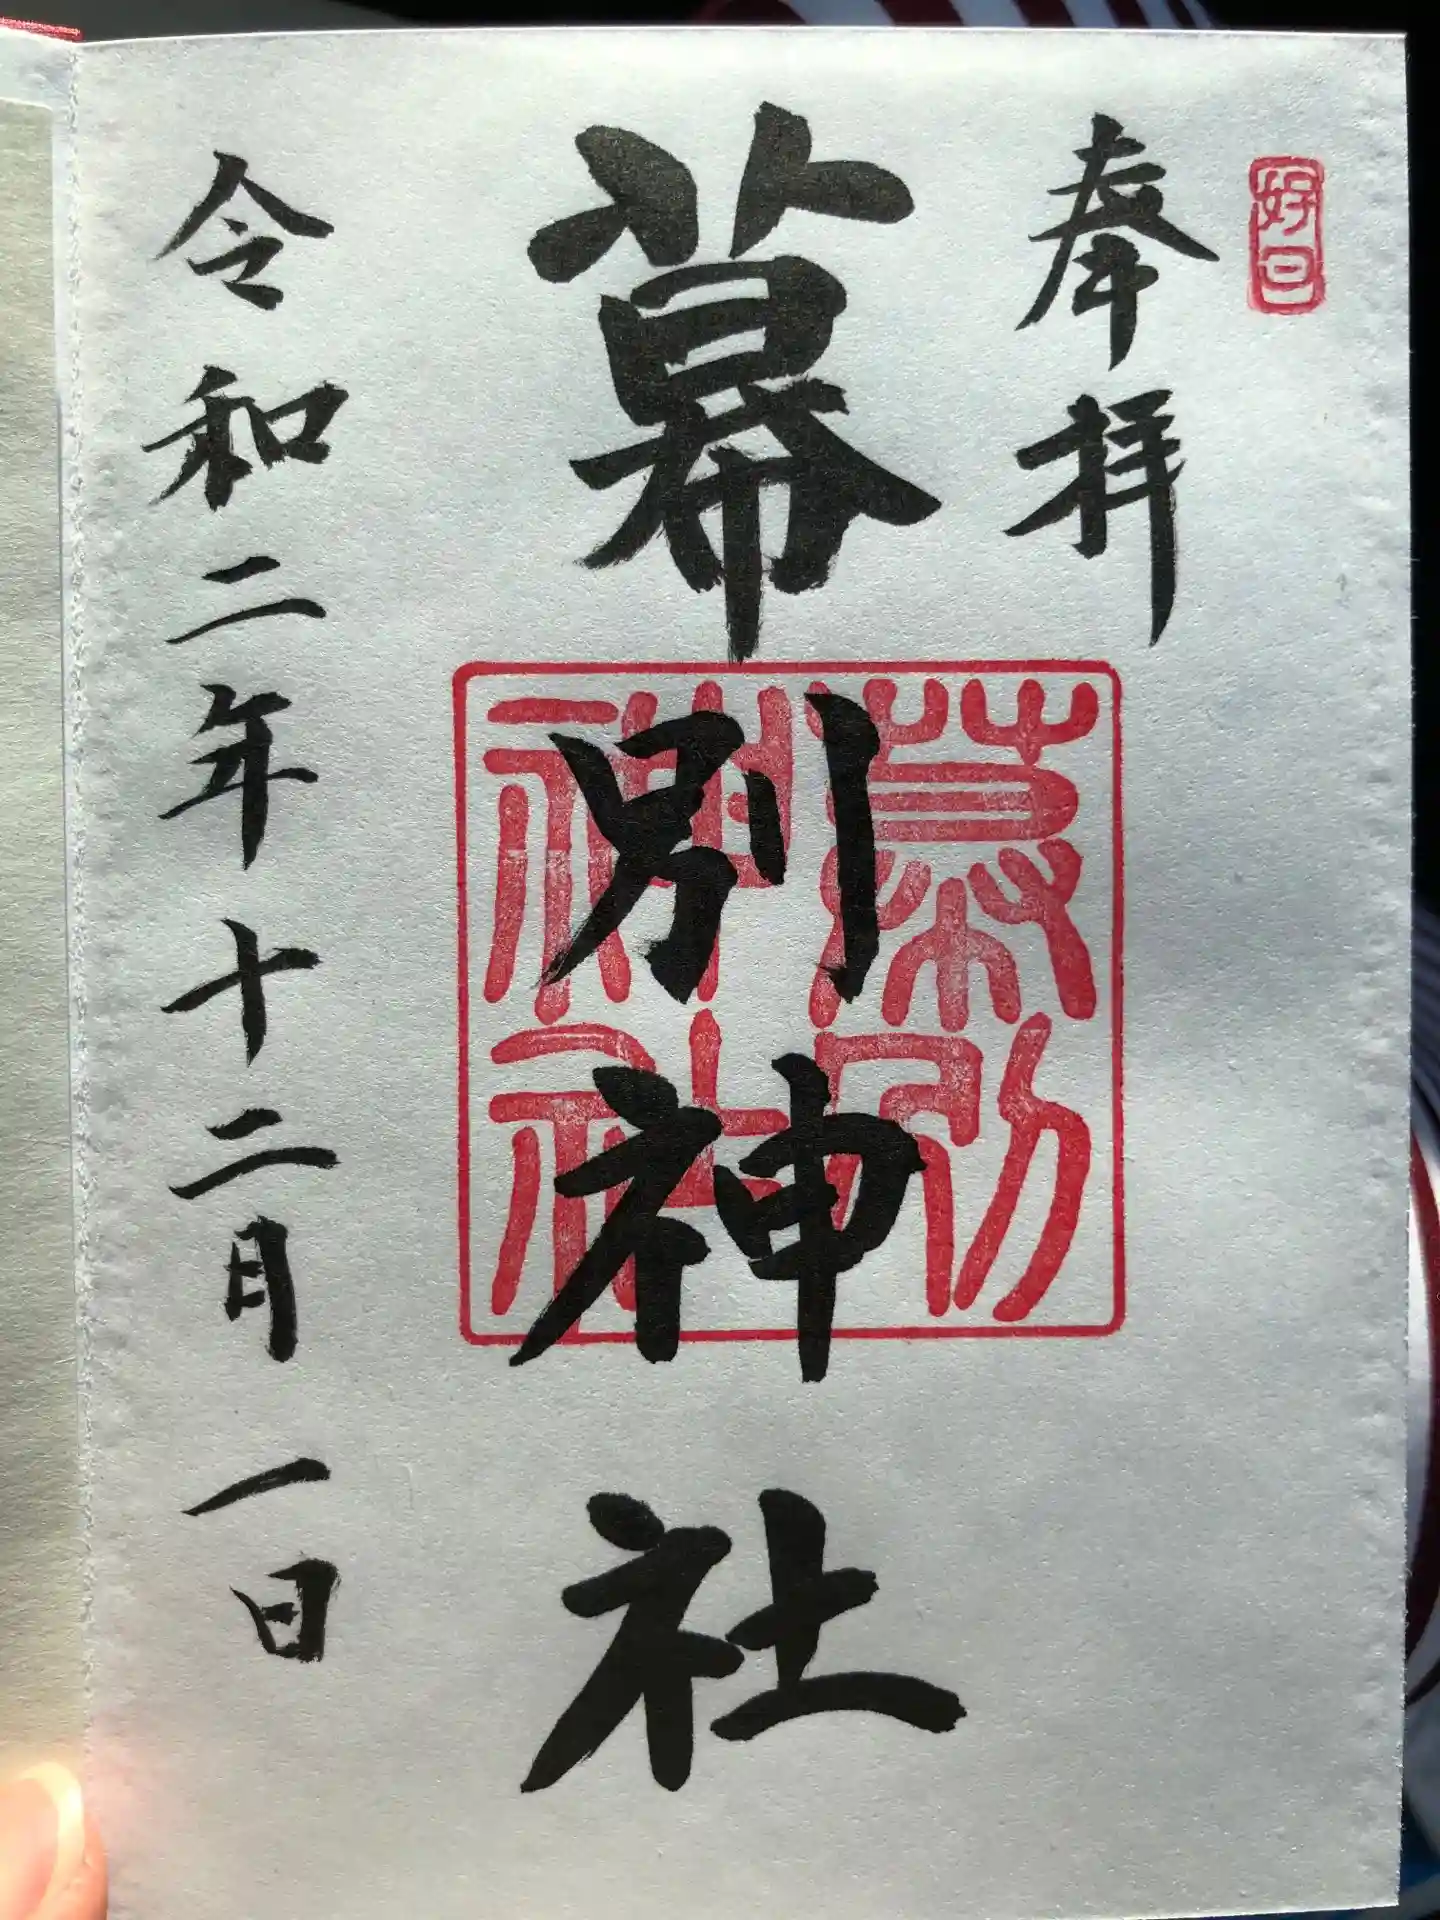 好日
奉拝
幕別神社
幕別神社
令和二年十二月一日